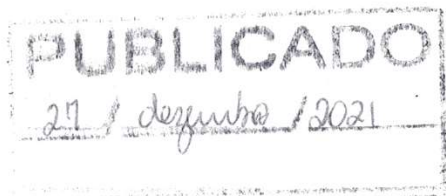 PUBLICADO
27 / dezembro / 2021